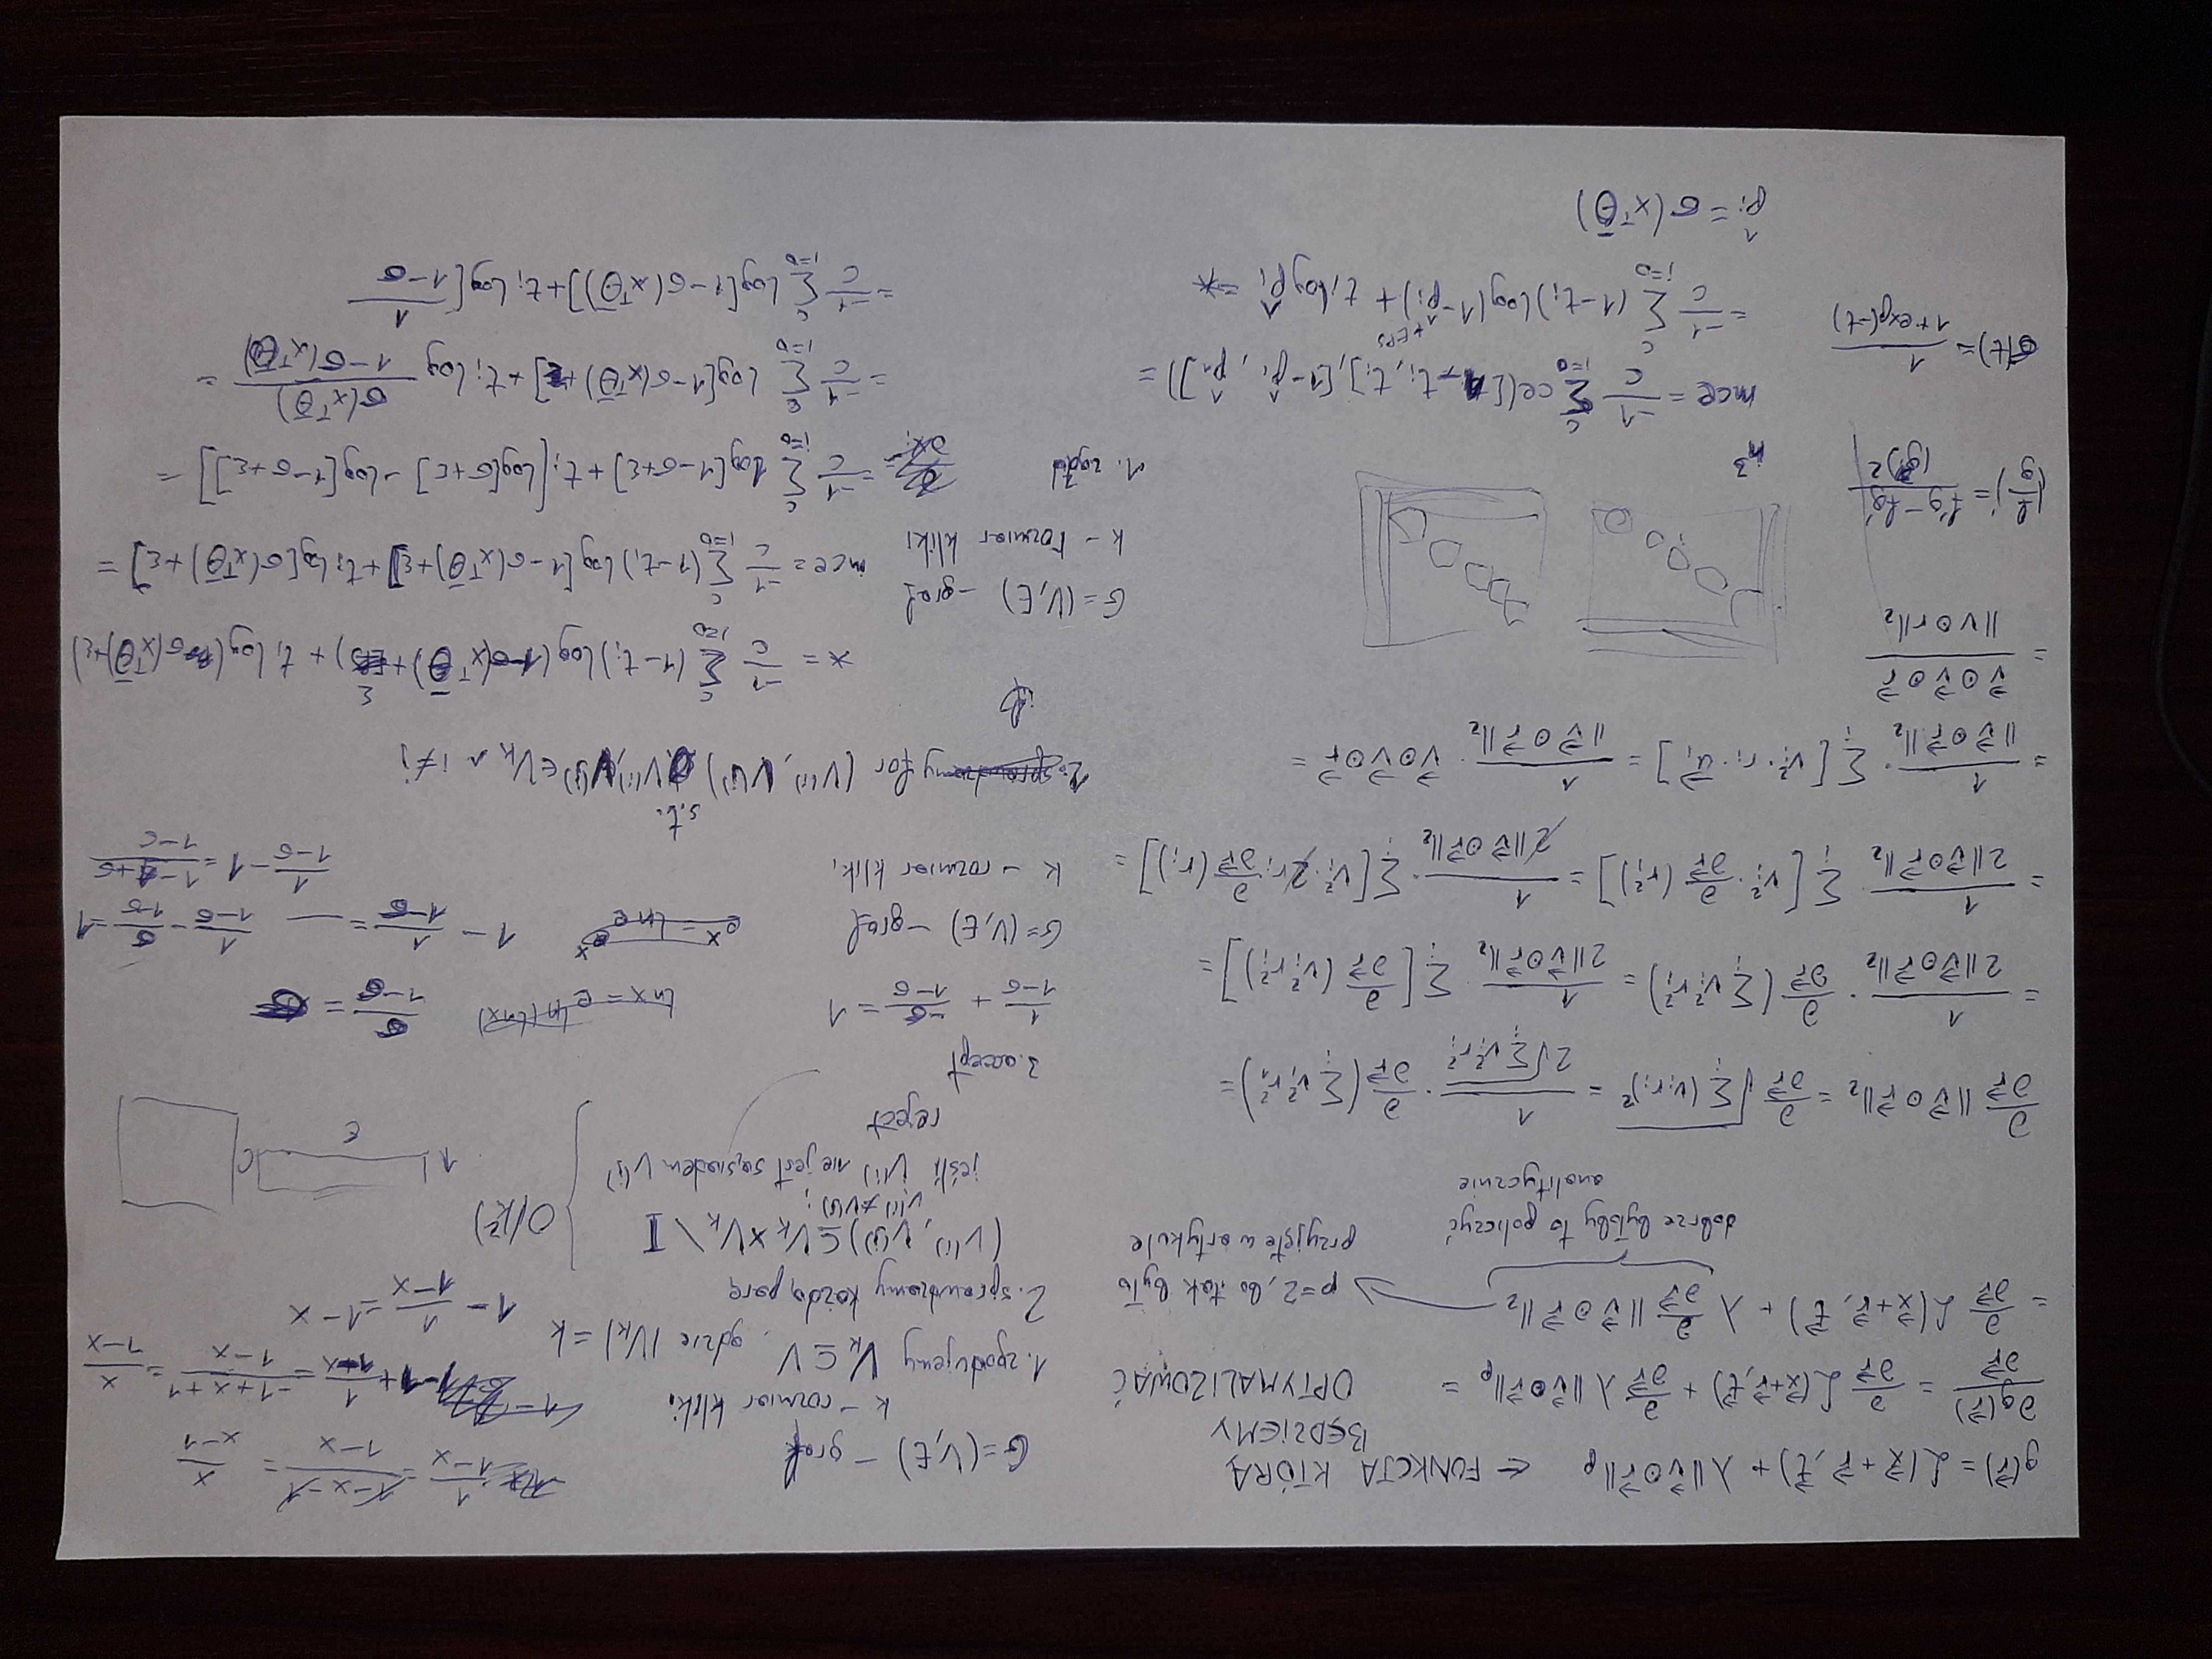 g(r⃗) = ℒ(x⃗ + r⃗, t⃗) + λ ||v⃗ ⊙ r⃗||_p ← FUNKCJA KTÓRĄ
BĘDZIEMY
OPTYMALIZOWAĆ
∂g(r⃗)/∂r⃗ = ∂/∂r⃗ ℒ(x⃗+r⃗, t⃗) + ∂/∂r⃗ λ ||v⃗ ⊙ r⃗||_p =
= ∂/∂r⃗ ℒ(x⃗+r⃗, t⃗) + λ ∂/∂r⃗ ||v⃗ ⊙ r⃗||_2
p=2, bo tak było
przyjęte w artykule
dobrze byłoby to policzyć
analitycznie
∂/∂r⃗ ||v⃗ ⊙ r⃗||_2 = ∂/∂r⃗ √(∑_i (v_i r_i)²) = 1/(2√(∑_i v_i² r_i²)) · ∂/∂r⃗ (∑_i v_i² r_i²) =
= 1/(2||v⃗ ⊙ r⃗||_2) · ∂/∂r⃗ (∑_i v_i² r_i²) = 1/(2||v⃗ ⊙ r⃗||_2) ∑_i [∂/∂r⃗ (v_i² r_i²)] =
= 1/(2||v⃗ ⊙ r⃗||_2) · ∑_i [v_i² · ∂/∂r⃗ (r_i²)] = 1/(2||v⃗ ⊙ r⃗||_2) · ∑_i [v_i² · 2r_i · ∂/∂r⃗ (r_i)] =
= 1/||v⃗ ⊙ r⃗||_2 · ∑_i [v_i² · r_i · u⃗_i] = 1/||v⃗ ⊙ r⃗||_2 · v⃗ ⊙ v⃗ ⊙ r⃗ =
= (v⃗ ⊙ v⃗ ⊙ r⃗)/||v ⊙ r||_2
(f/g)' = (f'g − fg')/(g)²
n³
σ(t) = 1/(1+exp(−t))
mce = −1/c ∑_{i=0}^{c} ce([1−t_i, t_i], [1−p̂_i, p̂_i]) =
= −1/c ∑_{i=0}^{c} (1−t_i) log(1−p̂_i +EPS) + t_i log p̂_i = *
p̂_i = σ(xᵀΘ̄)
G=(V,E) – graf
k – rozmiar kliki
1. zgadujemy V_k ⊆ V, gdzie |V_k| = k
2. sprawdzamy każdą parę
(v⁽ⁱ⁾, v⁽ʲ⁾) ⊆ V_k × V_k \ I
v⁽ⁱ⁾ ≠ v⁽ʲ⁾;
jeśli v⁽ⁱ⁾ nie jest sąsiadem v⁽ʲ⁾
reject
O(k²)
3. accept
1/(1−x) = (1−x−1)/(1−x) = x/(x−1)
−1 + 1/(1−x) = (−1+x+1)/(1−x) = x/(1−x)
1 − 1/(1−x) = 1−x
1
C
C
1/(1−σ) + −σ/(1−σ) = 1
ln x = e^{ln(ln x)}
σ/(1−σ) =
G=(V,E) – graf
k – rozmiar kliki
e^x = ln e^{e^x}
1 − 1/(1−σ) = —
1/(1−σ) − σ/(1−σ) = 1
1/(1−σ) − 1 = (1−1+σ)/(1−σ)
s.t.
2. sprawdzamy for (V⁽ⁱ⁾, V⁽ʲ⁾) V⁽ⁱ⁾, V⁽ʲ⁾ ∈ V_k ∧ i≠j
if
* = −1/c ∑_{i=0}^{c} (1−t_i) log(1−σ(xᵀΘ̄)+ε) + t_i log(σ(xᵀΘ̄)+ε)
G=(V,E) – graf
k – rozmiar kliki
mce = −1/c ∑_{i=0}^{c} (1−t_i) log[1−σ(xᵀΘ̄)+ε] + t_i log[σ(xᵀΘ̄)+ε] =
1. zgad
= −1/c ∑_{i=0}^{c} log[1−σ+ε] + t_i [log[σ+ε] − log[1−σ+ε]] =
= −1/c ∑_{i=0}^{c} log[1−σ(xᵀΘ̄)+ε] + t_i log σ(xᵀΘ̄)/(1−σ(xᵀΘ̄)) =
= −1/c ∑_{i=0}^{c} log[1−σ(xᵀΘ̄)] + t_i log[1/(1−σ)